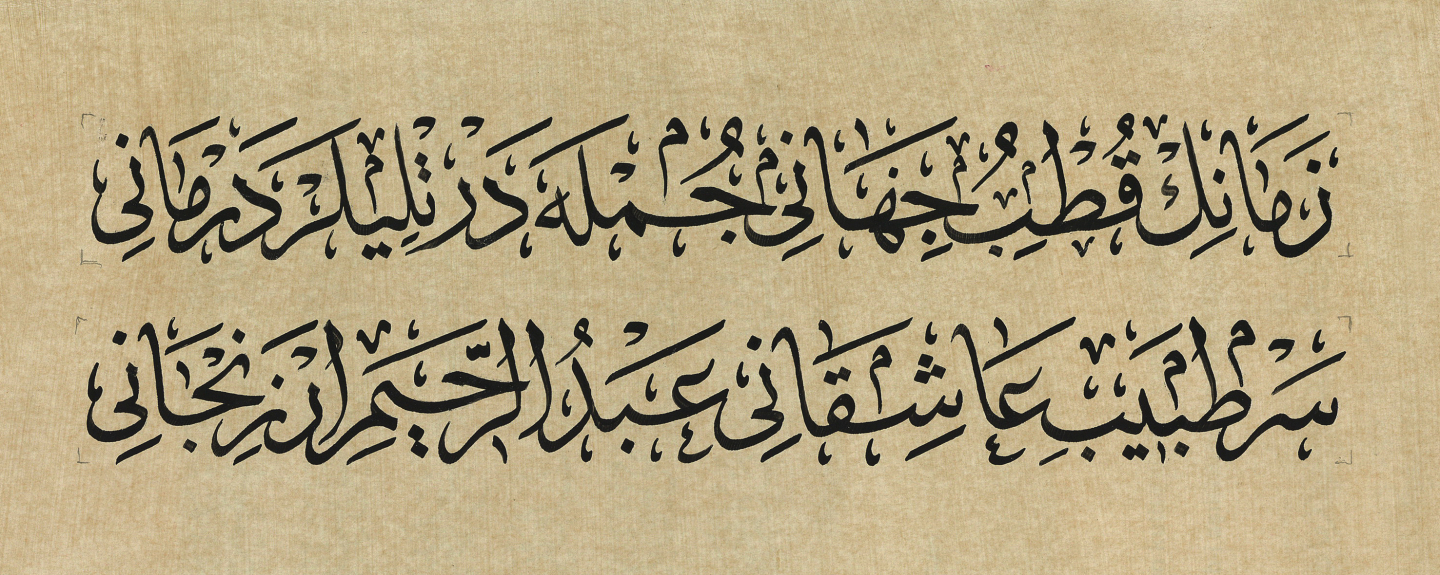 زَمَانِكْ قُطْبِ جِهَانِي جُمْلَه دَرْتْلِيلَرْ دَرْمَانِي
سَرْطَبِيبِ عَاشِقَانِي عَبْدُ الرَّحِيمِ ارْزِنْجَانِي